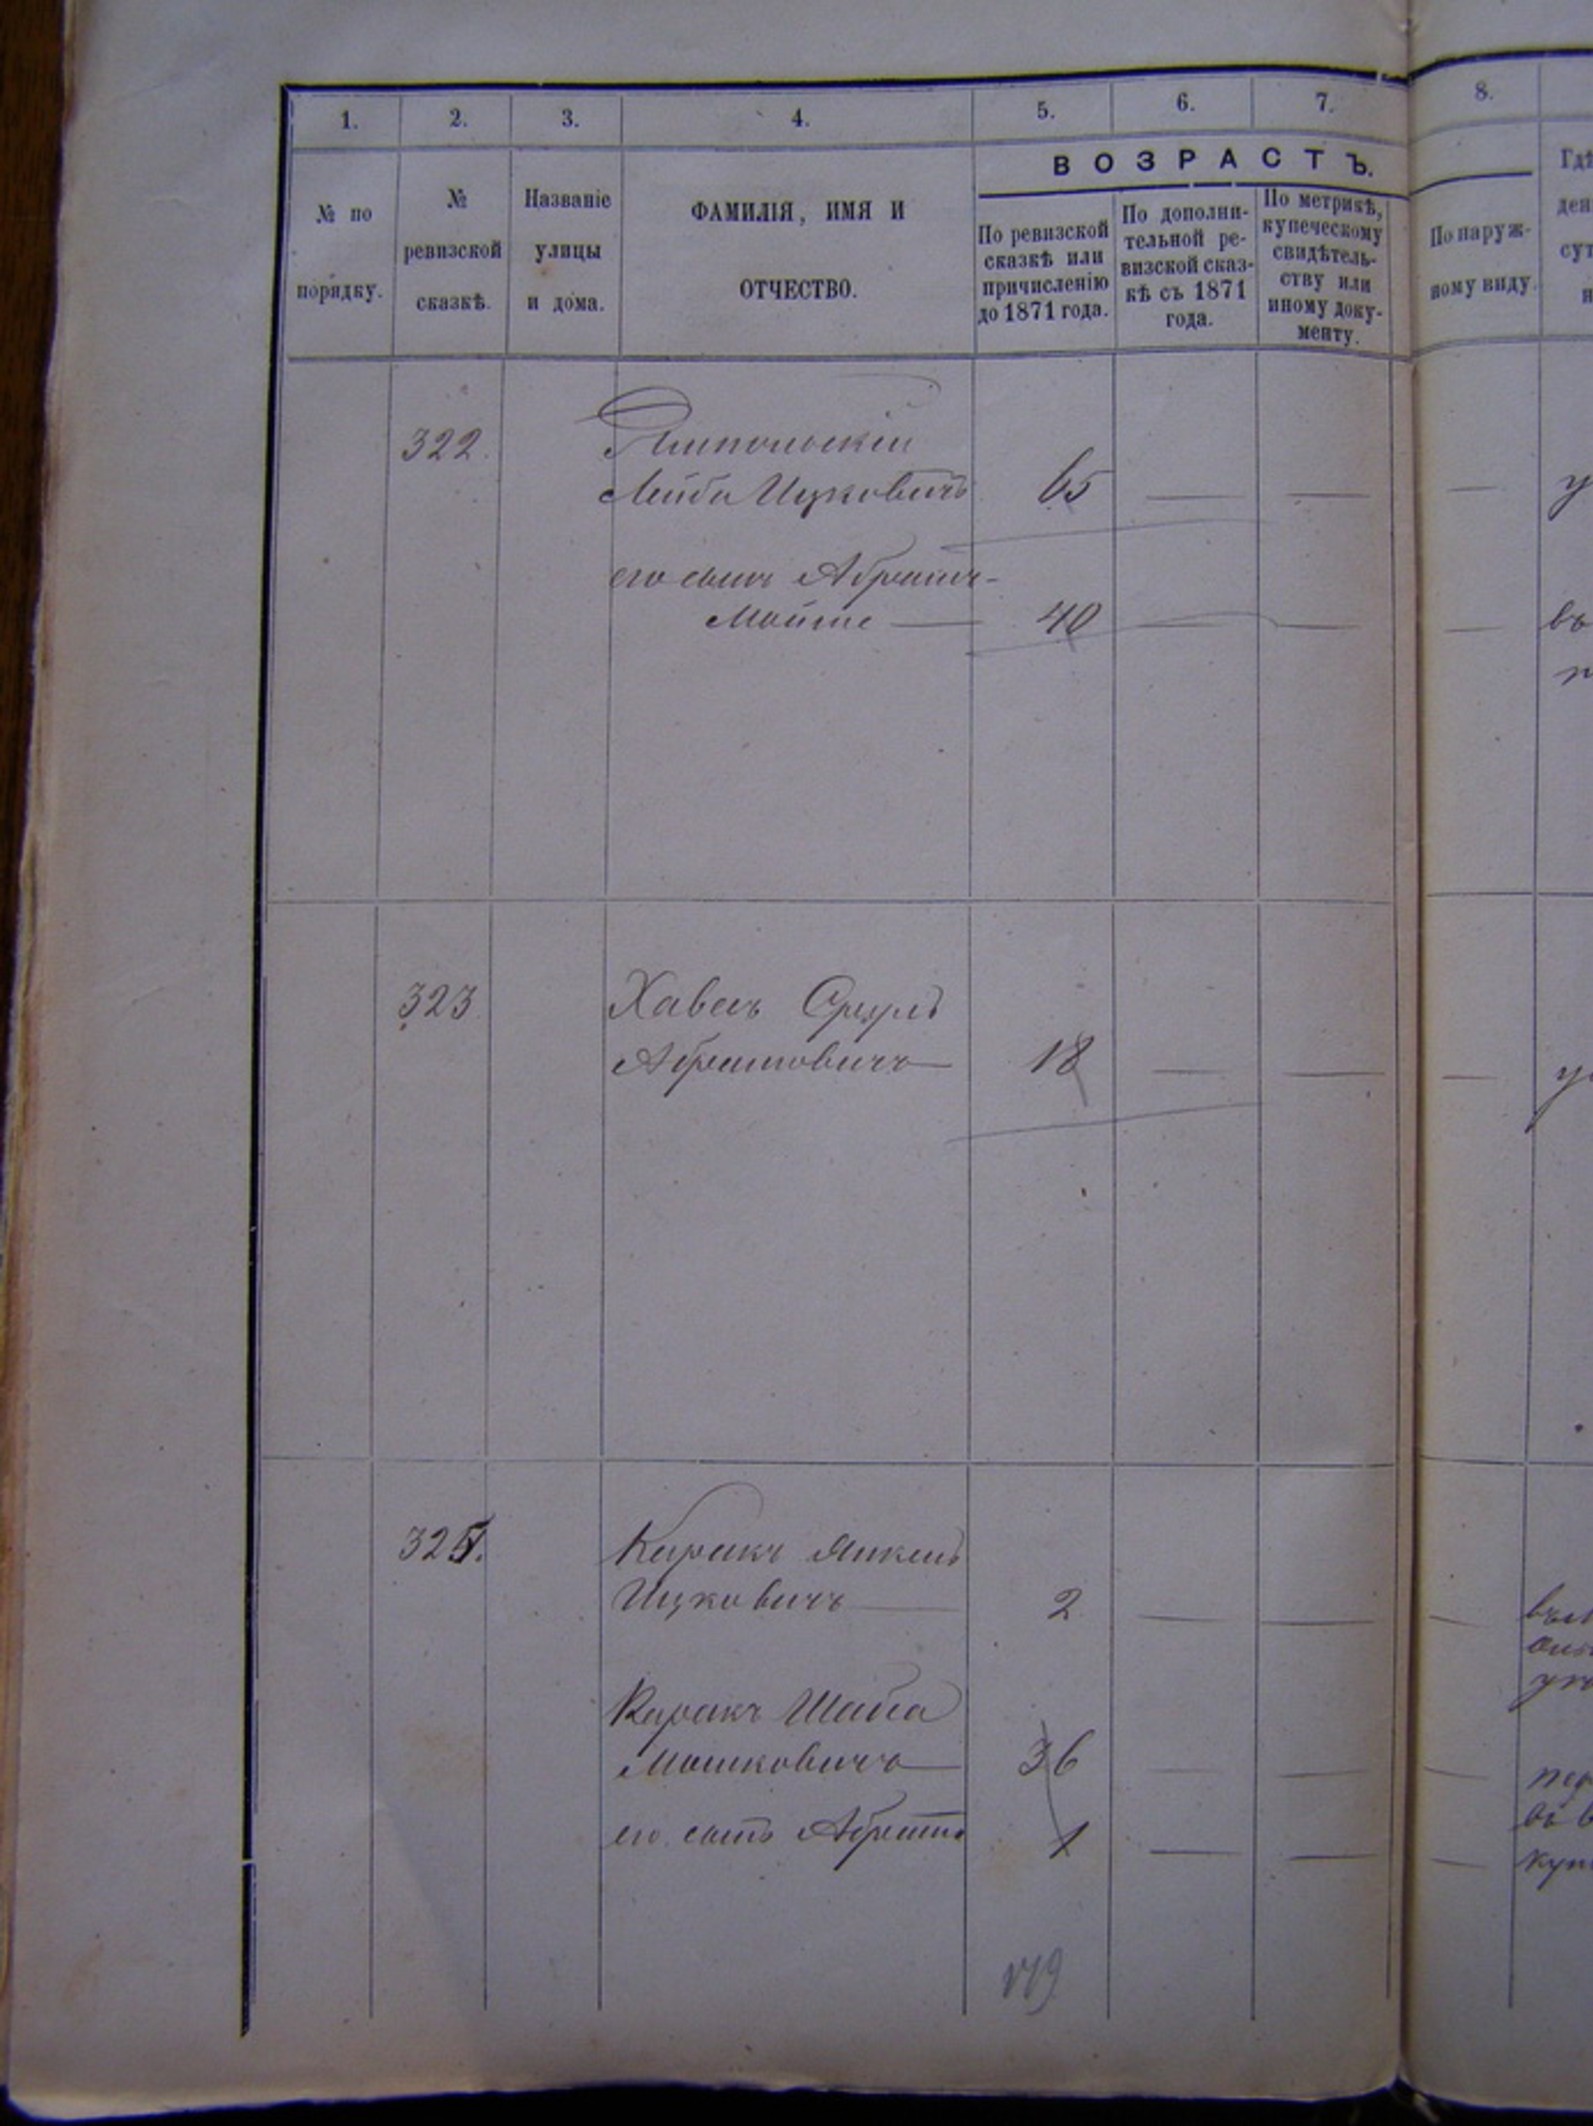 1. 2. 3. 4. 5. 6. 7. 8.
№ по порядку.
№ ревизской сказкѣ.
Названіе улицы и дома.
ФАМИЛІЯ, ИМЯ И ОТЧЕСТВО.
ВОЗРАСТЪ.
По ревизской сказкѣ или причисленію до 1871 года.
По дополни-
тельной ре-
визской сказ-
кѣ съ 1871
года.
По метрикѣ,
купеческому
свидѣтель-
ству или
иному доку-
менту.
По наруж-
ному виду.
322.
Лейба Ицковичъ 65 — — —
его сынъ Абрамъ-
Мойше — 40 — — —
323.
Хавесъ Сруль
Абрамовичъ — 18 — — —
Каракъ Янкель
Ицковичъ — 2 — — —
Каракъ Шая
Мошковичъ — 36 — — —
его сынъ Абрамъ 1 — — —